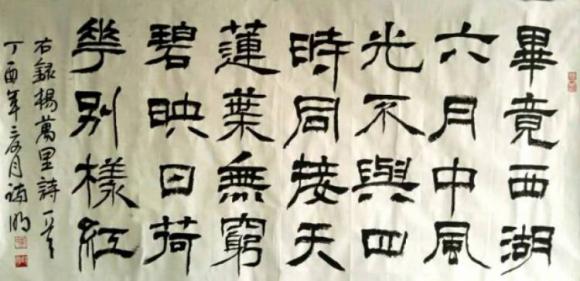 畢竟西湖
六月中風
光不與四
時同接天
蓮葉無窮
碧映日荷
華別樣紅
右錄楊萬里詩一首
丁酉年